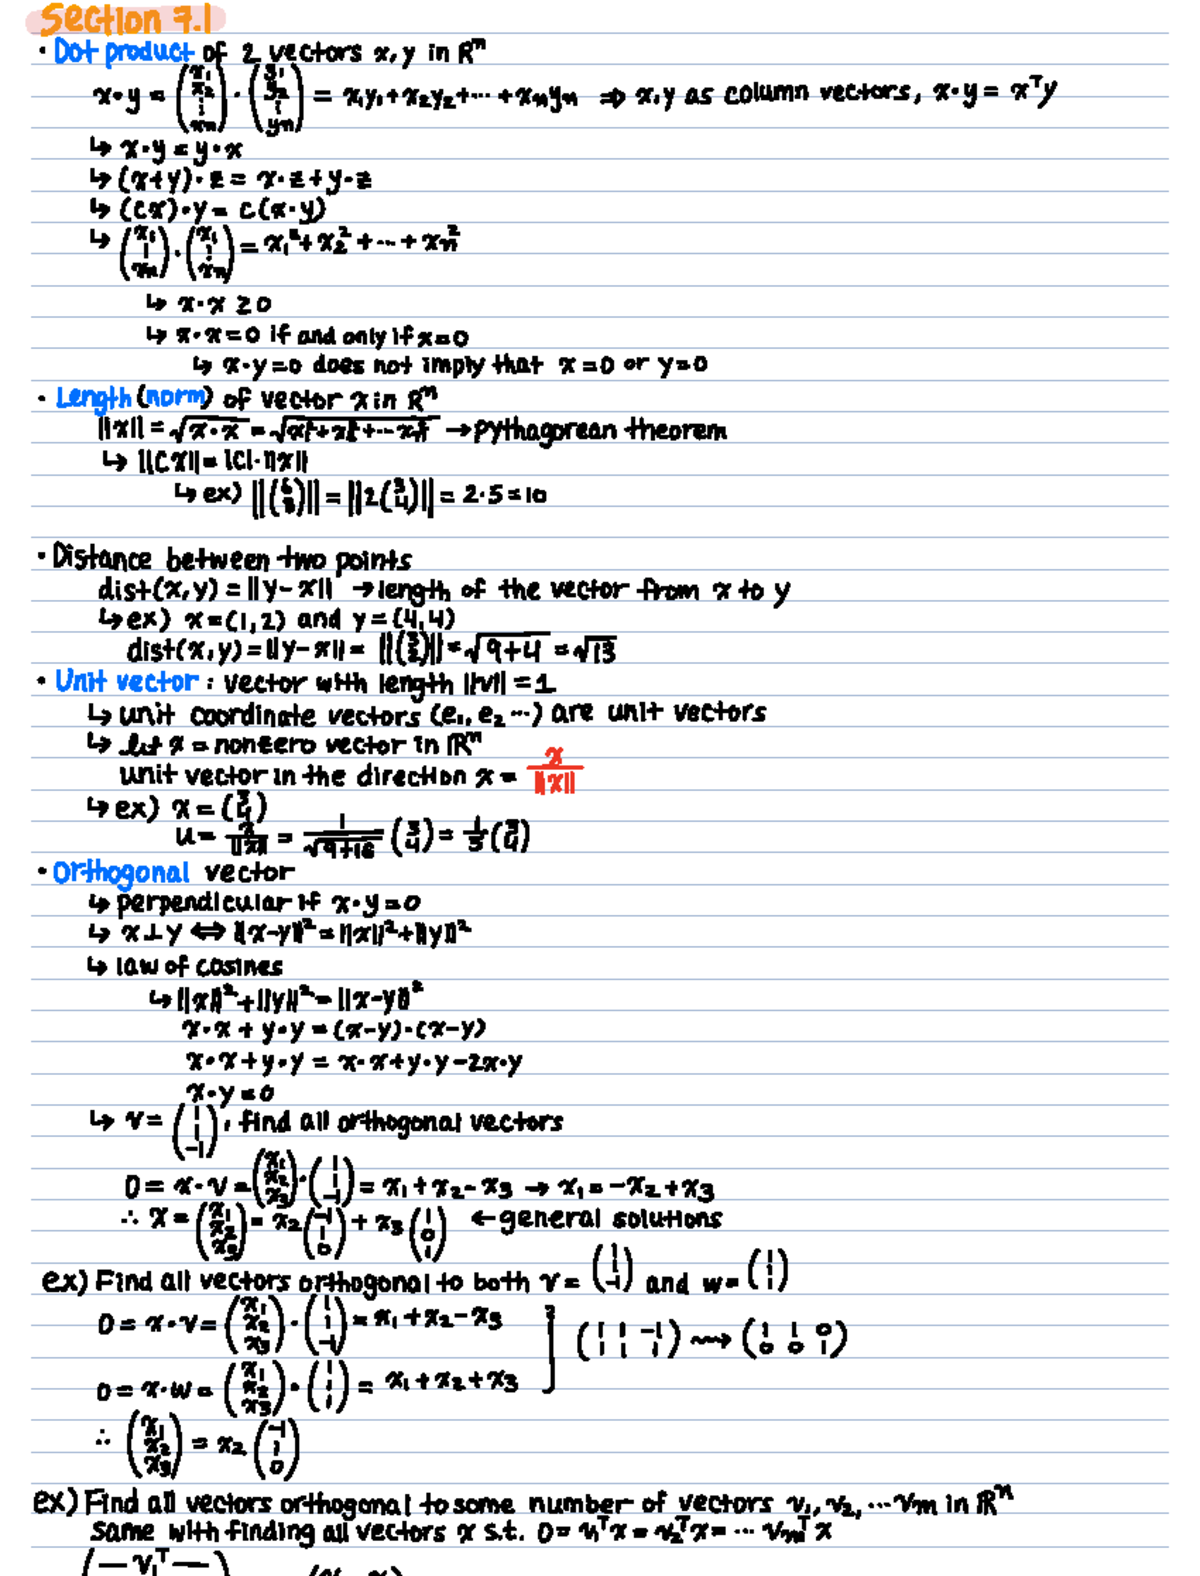 Section 7.1
• Dot product of 2 vectors x, y in Rⁿ
x·y = (x₁ x₂ ⋮ xn) · (y₁ y₂ ⋮ yn) = x₁y₁+x₂y₂+···+xnyn ⇒ x,y as column vectors, x·y = xᵀy
↳ x·y = y·x
↳ (x+y)·z = x·z+y·z
↳ (cx)·y = c(x·y)
↳ (x₁ ⋮ xn) · (x₁ ⋮ xn) = x₁²+x₂²+···+xn²
↳ x·x ≥ 0
↳ x·x = 0 if and only if x=0
↳ x·y=0 does not imply that x=0 or y=0
• Length (norm) of vector x in Rⁿ
||x|| = √x·x = √x₁²+x₂²+···xn² → pythagorean theorem
↳ ||cx|| = |c|·||x||
↳ ex) ||(6 8)|| = ||2(3 4)|| = 2·5=10
• Distance between two points
dist(x,y) = ||y-x|| → length of the vector from x to y
↳ ex) x=(1,2) and y=(4,4)
dist(x,y) = ||y-x|| = ||(3 2)|| = √9+4 = √13
• Unit vector: vector with length ||v|| = 1
↳ unit coordinate vectors (e₁, e₂ ···) are unit vectors
↳ let x = nonzero vector in ℝⁿ
unit vector in the direction x = x/||x||
↳ ex) x = (3 4)
u = x/||x|| = 1/√9+16 (3 4) = 1/5 (3 4)
• Orthogonal vector
↳ perpendicular if x·y=0
↳ x⊥y ⇔ ||x-y||² = ||x||²+||y||²
↳ law of cosines
↳ ||x||²+||y||² = ||x-y||²
x·x + y·y = (x-y)·(x-y)
x·x + y·y = x·x+y·y-2x·y
x·y = 0
↳ v = (1 1 -1), find all orthogonal vectors
0 = x·v = (x₁ x₂ x₃) · (1 1 -1) = x₁+x₂-x₃ → x₁ = -x₂+x₃
∴ x = (x₁ x₂ x₃) = x₂(-1 1 0) + x₃(1 0 1) ← general solutions
ex) Find all vectors orthogonal to both v = (1 1 -1) and w = (1 1 1)
0 = x·v = (x₁ x₂ x₃) · (1 1 -1) = x₁+x₂-x₃
(1 1 -1 1 1 1) ⇝ (1 1 0 0 0 1)
0 = x·w = (x₁ x₂ x₃) · (1 1 1) = x₁+x₂+x₃
∴ (x₁ x₂ x₃) = x₂ (-1 1 0)
ex) Find all vectors orthogonal to some number of vectors v₁, v₂, ···vm in ℝⁿ
same with finding all vectors x s.t. 0 = v₁ᵀx = v₂ᵀx = ··· vmᵀx
(— v₁ᵀ —)